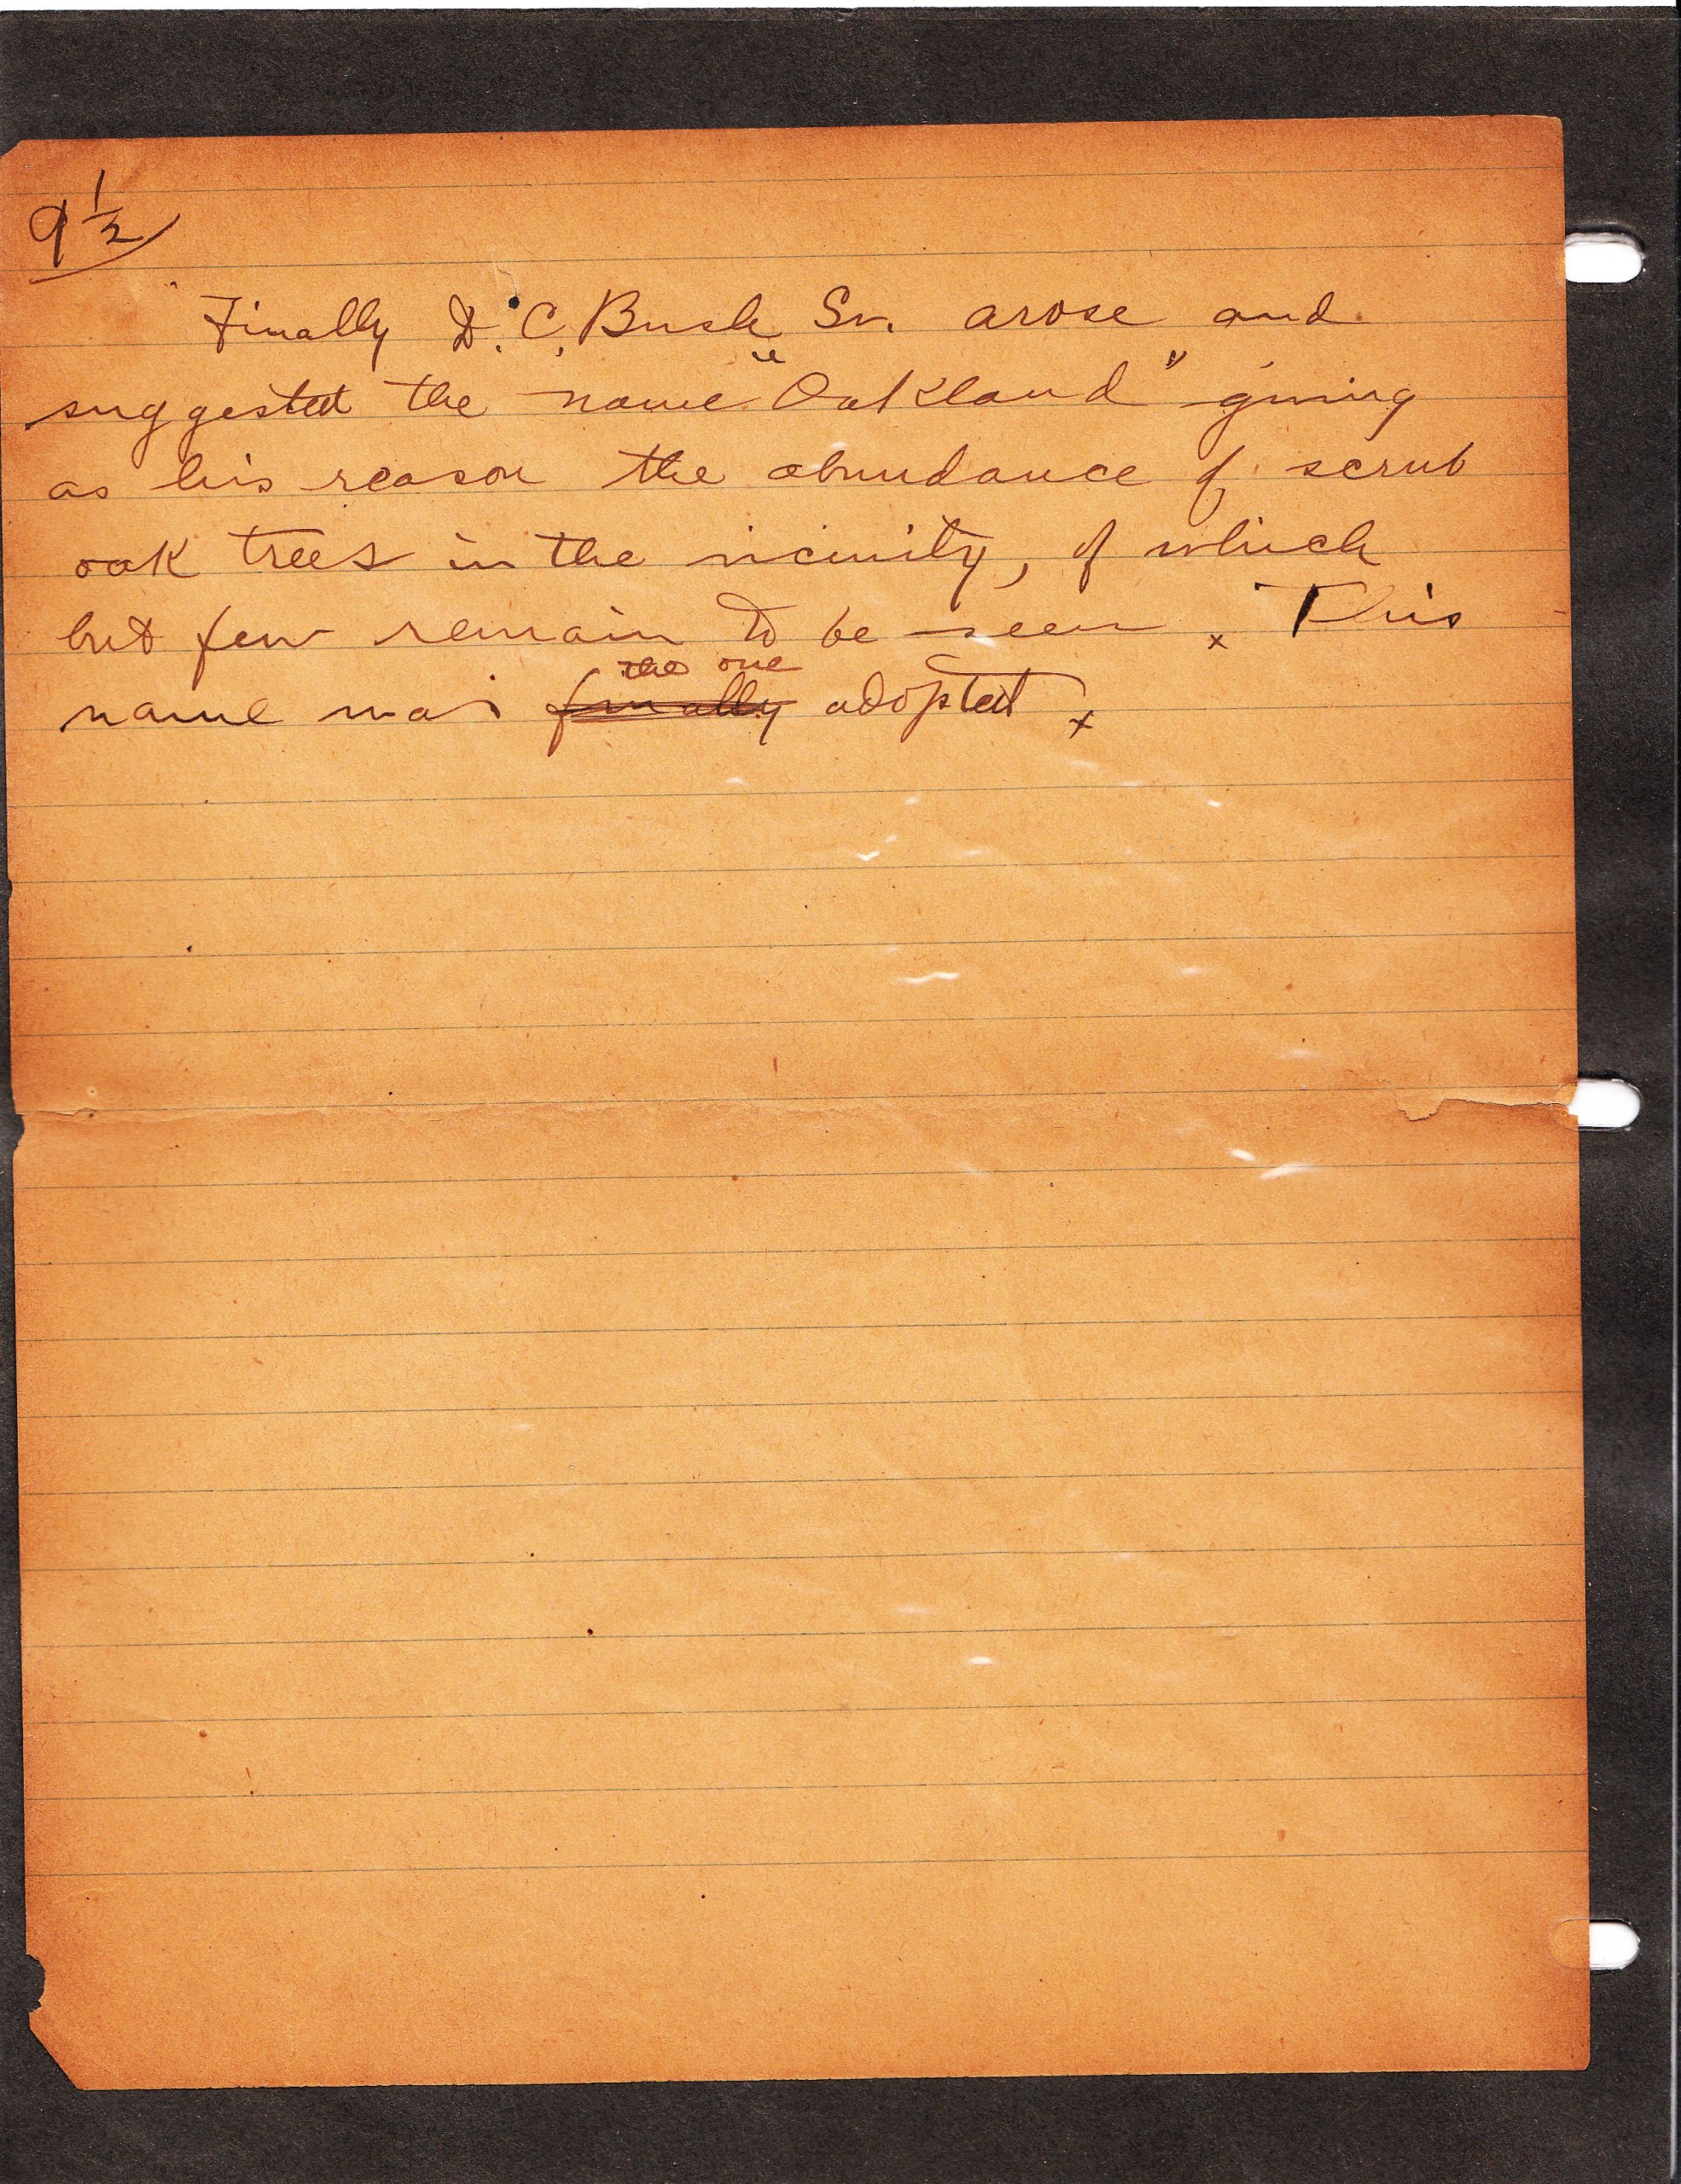 9 1/2
Finally D. C. Bush Sr. arose and
suggested the name "Oakland" giving
as his reason the abundance of scrub
oak trees in the vicinity, of which
but few remain to be seen x This
the one
name was finally adopted x